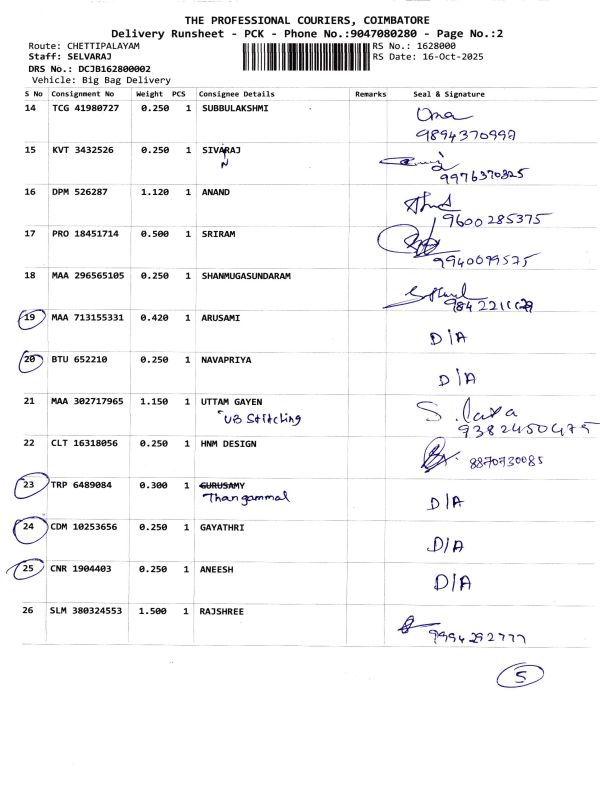 THE PROFESSIONAL COURIERS, COIMBATORE
Delivery Runsheet - PCK - Phone No.:9047080280 - Page No.:2
Route: CHETTIPALAYAM RS No.: 1628000
Staff: SELVARAJ RS Date: 16-Oct-2025
DRS No.: DCJB162800002
Vehicle: Big Bag Delivery
S No Consignment No Weight PCS Consignee Details Remarks Seal & Signature
14 TCG 41980727 0.250 1 SUBBULAKSHMI Uma
9894370997
15 KVT 3432526 0.250 1 SIVARAJ
N
9976370325
16 DPM 526287 1.120 1 ANAND
9600285375
17 PRO 18451714 0.500 1 SRIRAM
9940099575
18 MAA 296565105 0.250 1 SHANMUGASUNDARAM
19 MAA 713155331 0.420 1 ARUSAMI
D/A
20 BTU 652210 0.250 1 NAVAPRIYA
D/A
21 MAA 302717965 1.150 1 UTTAM GAYEN
UB Stitcling
9382450475
22 CLT 16318056 0.250 1 HNM DESIGN
8870730085
23 TRP 6489084 0.300 1 GURUSAMY
Thangammal
D/A
24 CDM 10253656 0.250 1 GAYATHRI
D/A
25 CNR 1904403 0.250 1 ANEESH
D/A
26 SLM 380324553 1.500 1 RAJSHREE
9994292777
5